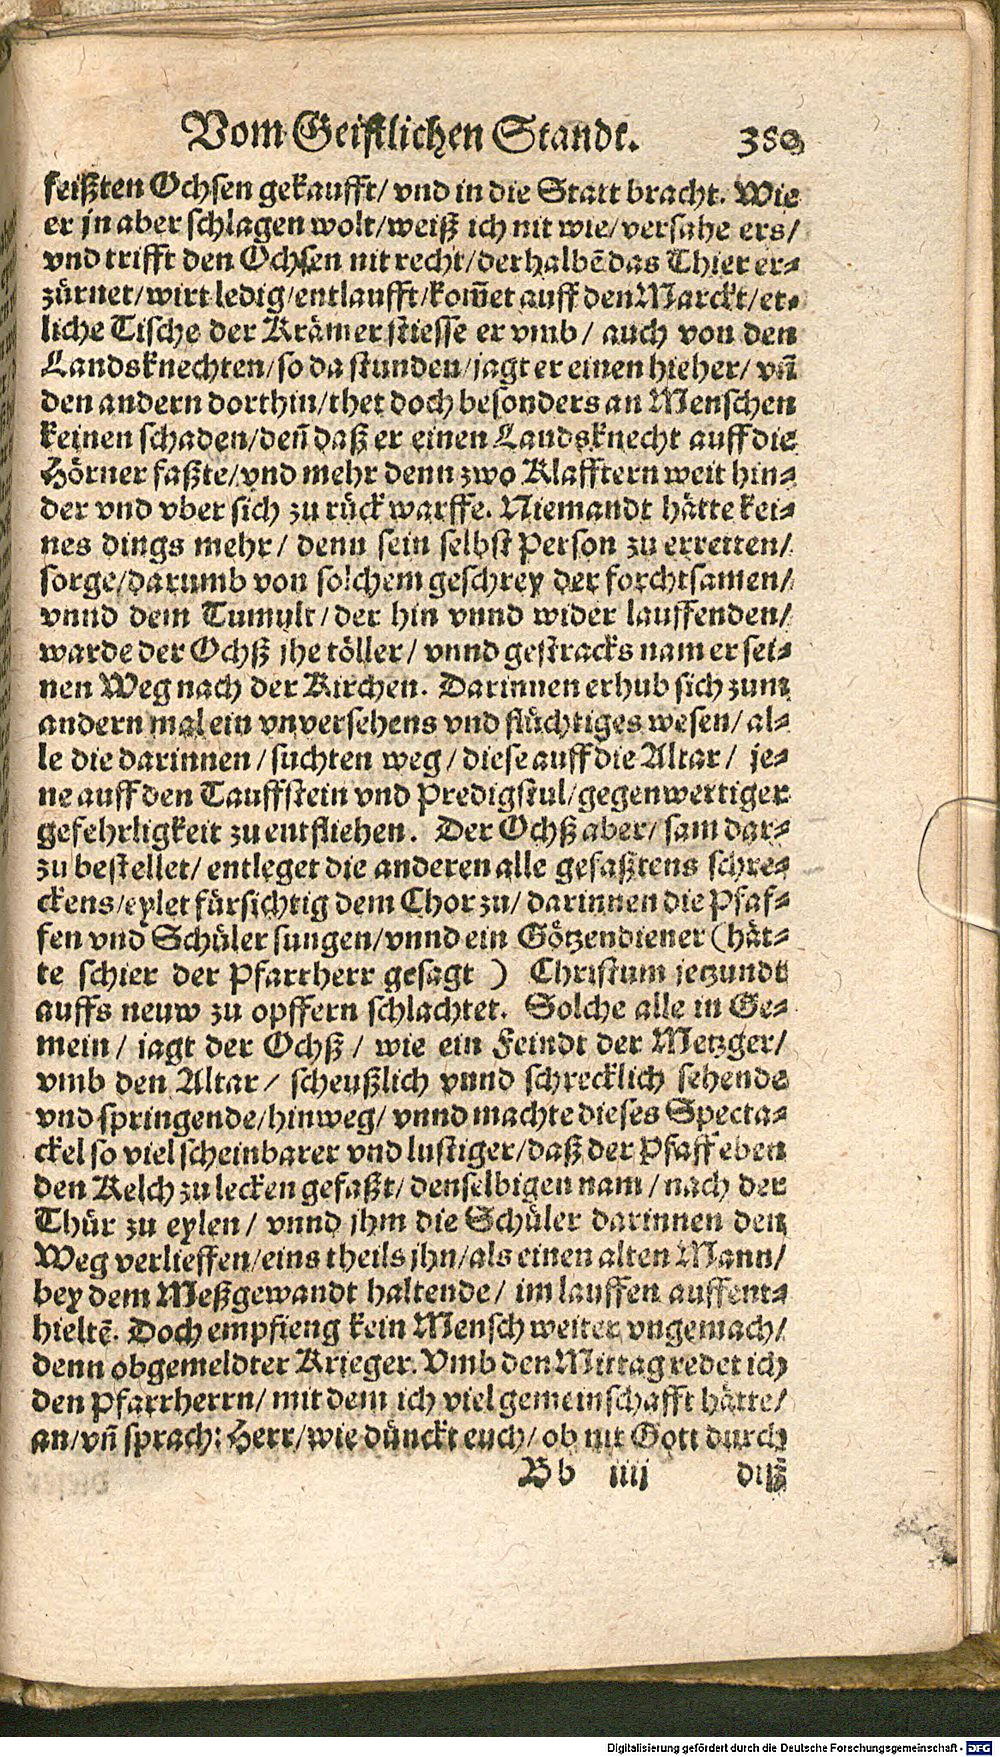 Vom Geistlichen Standt. 380
feißten Ochsen gekaufft/ vnd in die Statt bracht. Wie
er jn aber schlagen wolt/weiß ich nit wie/versahe ers/
vnd trifft den Ochsen nit recht/derhalbē das Thier er-
zürnet/wirt ledig/entlaufft/kom̄et auff den Marckt/et-
liche Tische der Krämer stiesse er vmb/ auch von den
Landsknechten/so da stunden/jagt er einen hieher/ vn̄
den andern dorthin/thet doch besonders an Menschen
keinen schaden/den̄ daß er einen Landsknecht auff die
Hörner faßte/vnd mehr denn zwo Klafftern weit hin-
der vnd vber sich zu rück warffe. Niemandt hätte kei-
nes dings mehr/ denn sein selbst Person zu erretten/
sorge/darumb von solchem geschrey der forchtsamen/
vnnd dem Tumult/der hin vnnd wider lauffenden/
warde der Ochß jhe töller/ vnnd gestracks nam er sei-
nen Weg nach der Kirchen. Darinnen erhub sich zum
andern mal ein vnversehens vnd flüchtiges wesen/ al-
le die darinnen/suchten weg/diese auff die Altar/ je-
ne auff den Tauffstein vnd Predigstul/gegenwertiger
gefehrligkeit zu entfliehen. Der Ochß aber/ sam dar-
zu bestellet/ entleget die anderen alle gefaßtens schre-
ckens/eylet fürsichtig dem Chor zu/ darinnen die Pfaf-
fen vnd Schüler sungen/vnnd ein Götzendiener (hät-
te schier der Pfarrherr gesagt ) Christum jetzundt
auffs neuw zu opffern schlachtet. Solche alle in Ge-
mein/ jagt der Ochß/ wie ein Feindt der Metzger/
vmb den Altar/ scheußlich vnnd schrecklich sehende
vnd springende/hinweg/ vnnd machte dieses Specta-
ckel so viel scheinbarer vnd lustiger/daß der Pfaff eben
den Kelch zu lecken gefaßt/denselbigen nam/nach der
Thür zu eylen/ vnnd jhm die Schüler darinnen den
Weg verlieffen/eins theils jhn/als einen alten Mann/
bey dem Meßgewandt haltende/ im lauffen auffent-
hieltē. Doch empfieng kein Mensch weiter vngemach/
denn obgemeldter Krieger. Vmb den Mittag redet ich
den Pfarrherrn/ mit dem ich viel gemeinschafft hätte/
an/vn̄ sprach: Herr/wie dünckt euch/ ob nit Gott durch
Bb iiij diß
Digitalisierung gefördert durch die Deutsche Forschungsgemeinschaft - DFG